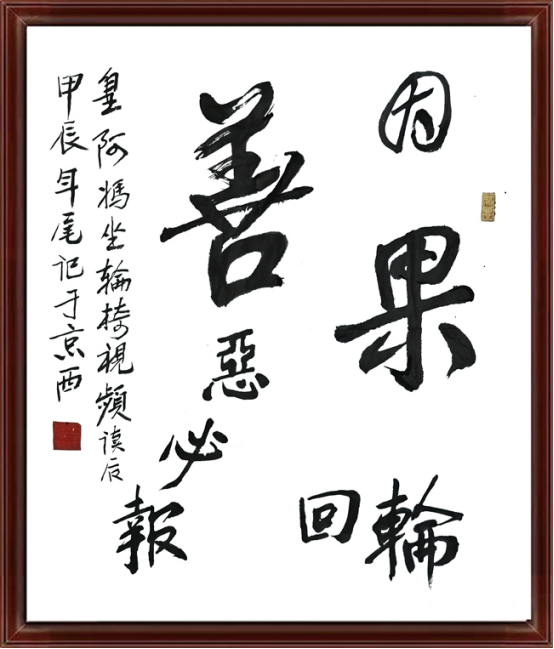 因果輪回
善惡必報
皇阿馮坐輪椅視頻讀后
甲辰年尾记于京西